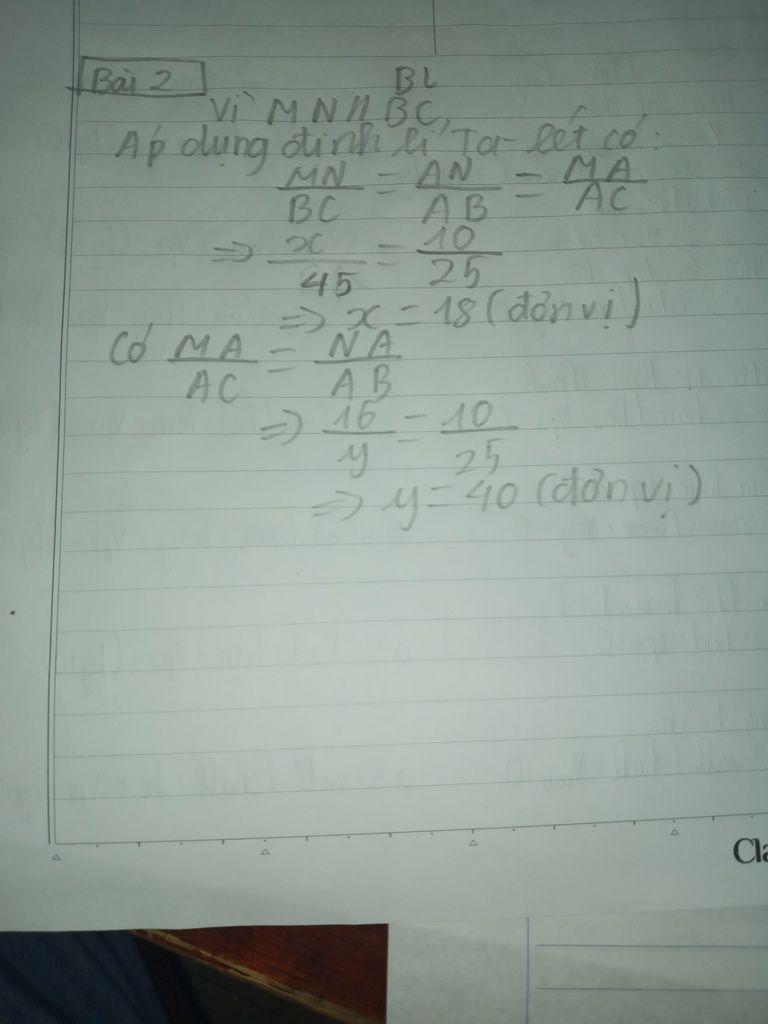 Bài 2
BL
Vì MN // BC,
Áp dụng định lí Ta-lét có:
MN/BC = AN/AB = MA/AC
=> x/45 = 10/25
=> x = 18 (đơn vị)
Có MA/AC = NA/AB
=> 16/y = 10/25
=> y = 40 (đơn vị)
Cla